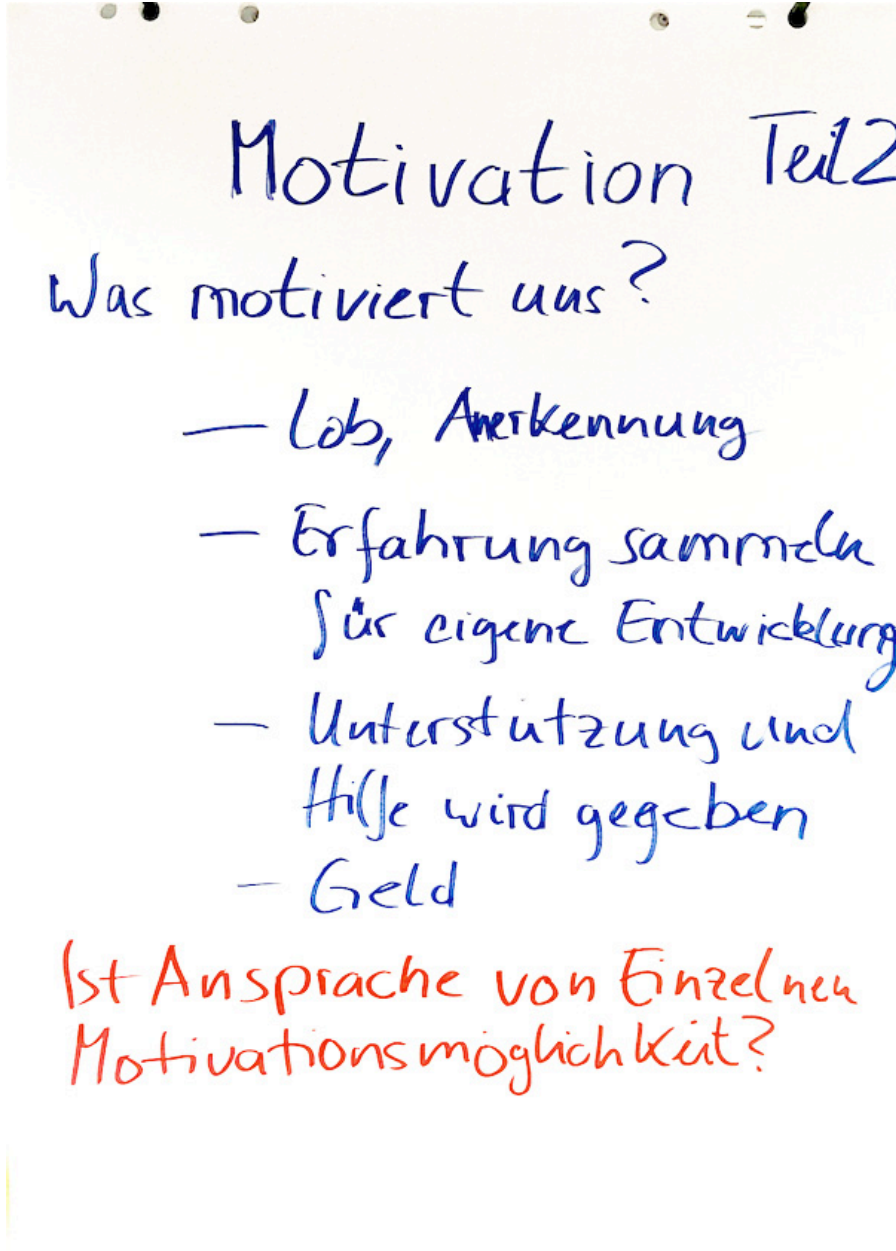 Motivation Teil 2
Was motiviert uns?
— Lob, Anerkennung
— Erfahrung sammeln
für eigene Entwicklung
— Unterstützung und
Hilfe wird gegeben
— Geld
Ist Ansprache von Einzelnen
Motivationsmöglichkeit?